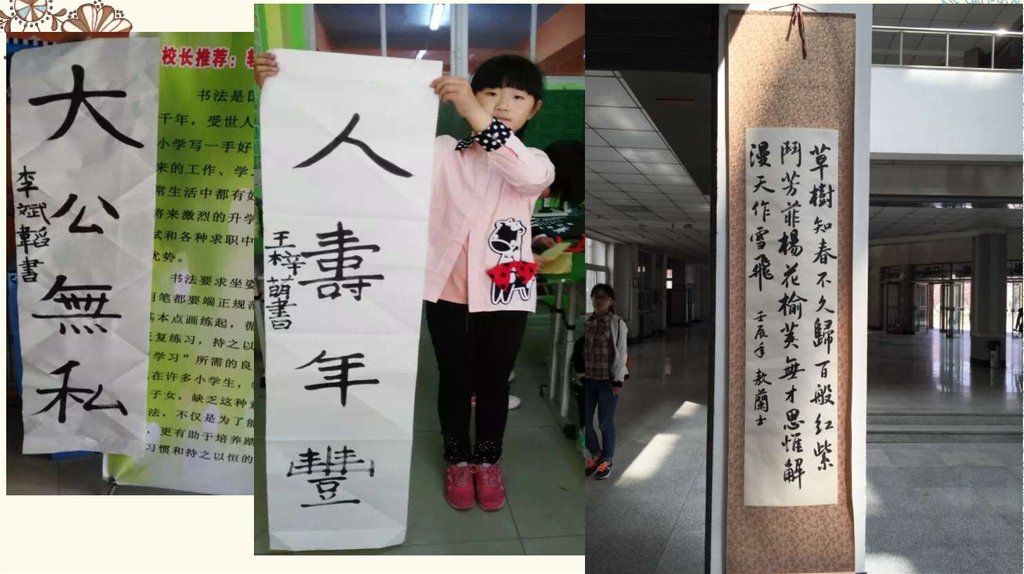 大公無私
李斌韜書
校长推荐：
书法是
千年，受世人
小学写一手好
来的工作、学
常生活中都有好
将来激烈的升学
试和各种求职中
优势。
书法要求坐姿
用笔都要端正规范
基本点画练起，循
复练习，持之以
学习”所需的良
在许多小学生，
子女，缺乏这种
法，不仅是为了能
，更有助于培养踏
习惯和持之以恒的
人壽年豐
王梓萌書
草樹知春不久歸百般紅紫
鬥芳菲楊花榆莢無才思惟解
漫天作雪飛
壬辰年 敖蘭士